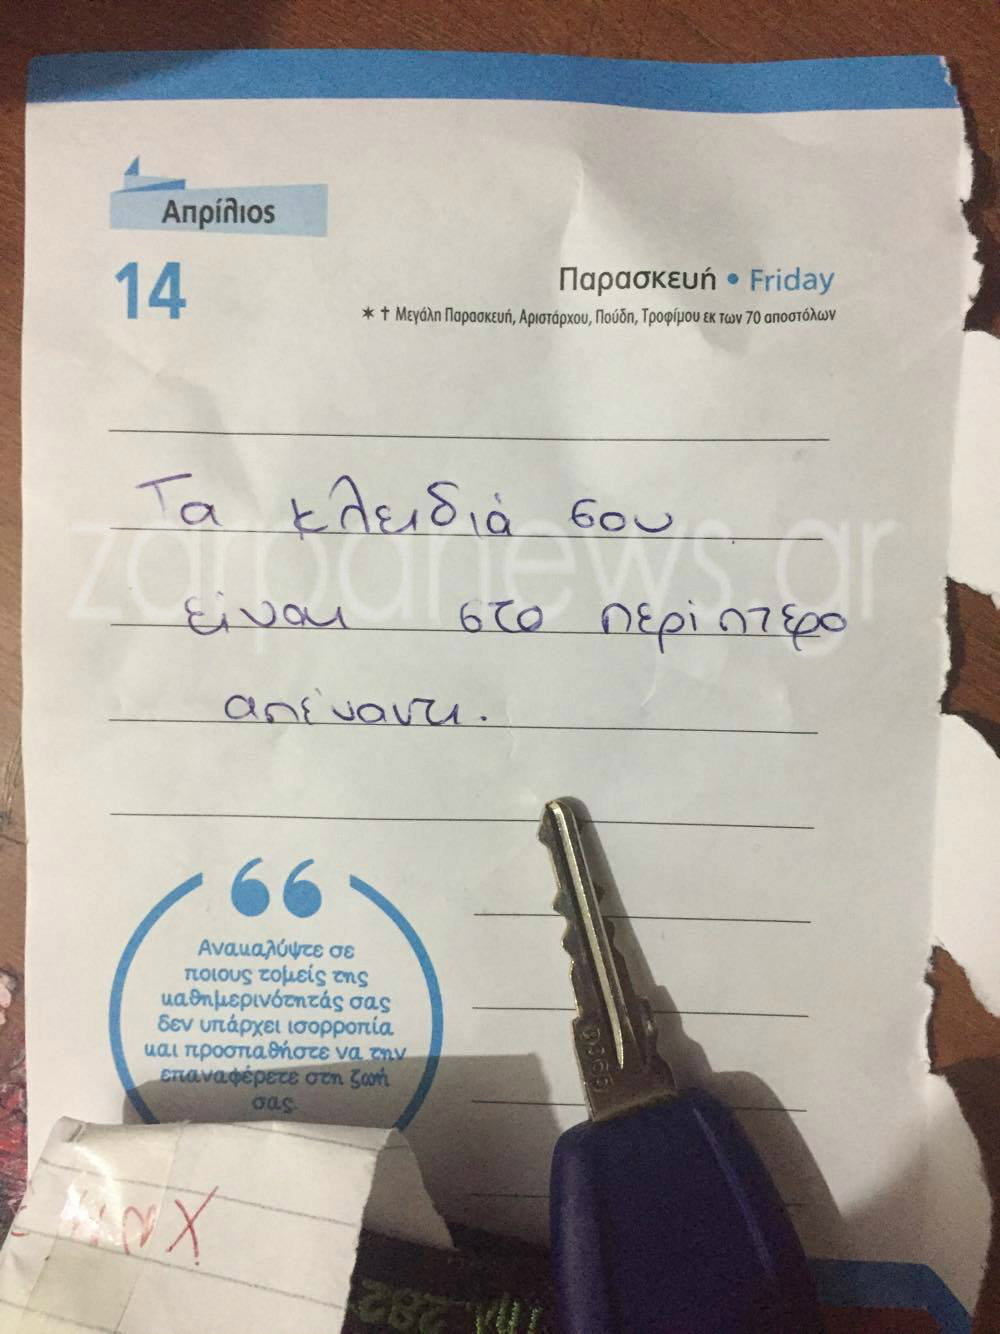 Απρίλιος
14
Παρασκευή • Friday
✶ † Μεγάλη Παρασκευή, Αριστάρχου, Πούδη, Τροφίμου εκ των 70 αποστόλων
Τα κλειδιά σου
zarpanews.gr
είναι στο περίπτερο
απέναντι.
Ανακαλύψτε σε
ποιους τομείς της
καθημερινότητάς σας
δεν υπάρχει ισορροπία
και προσπαθήστε να την
επαναφέρετε στη ζωή
σας.